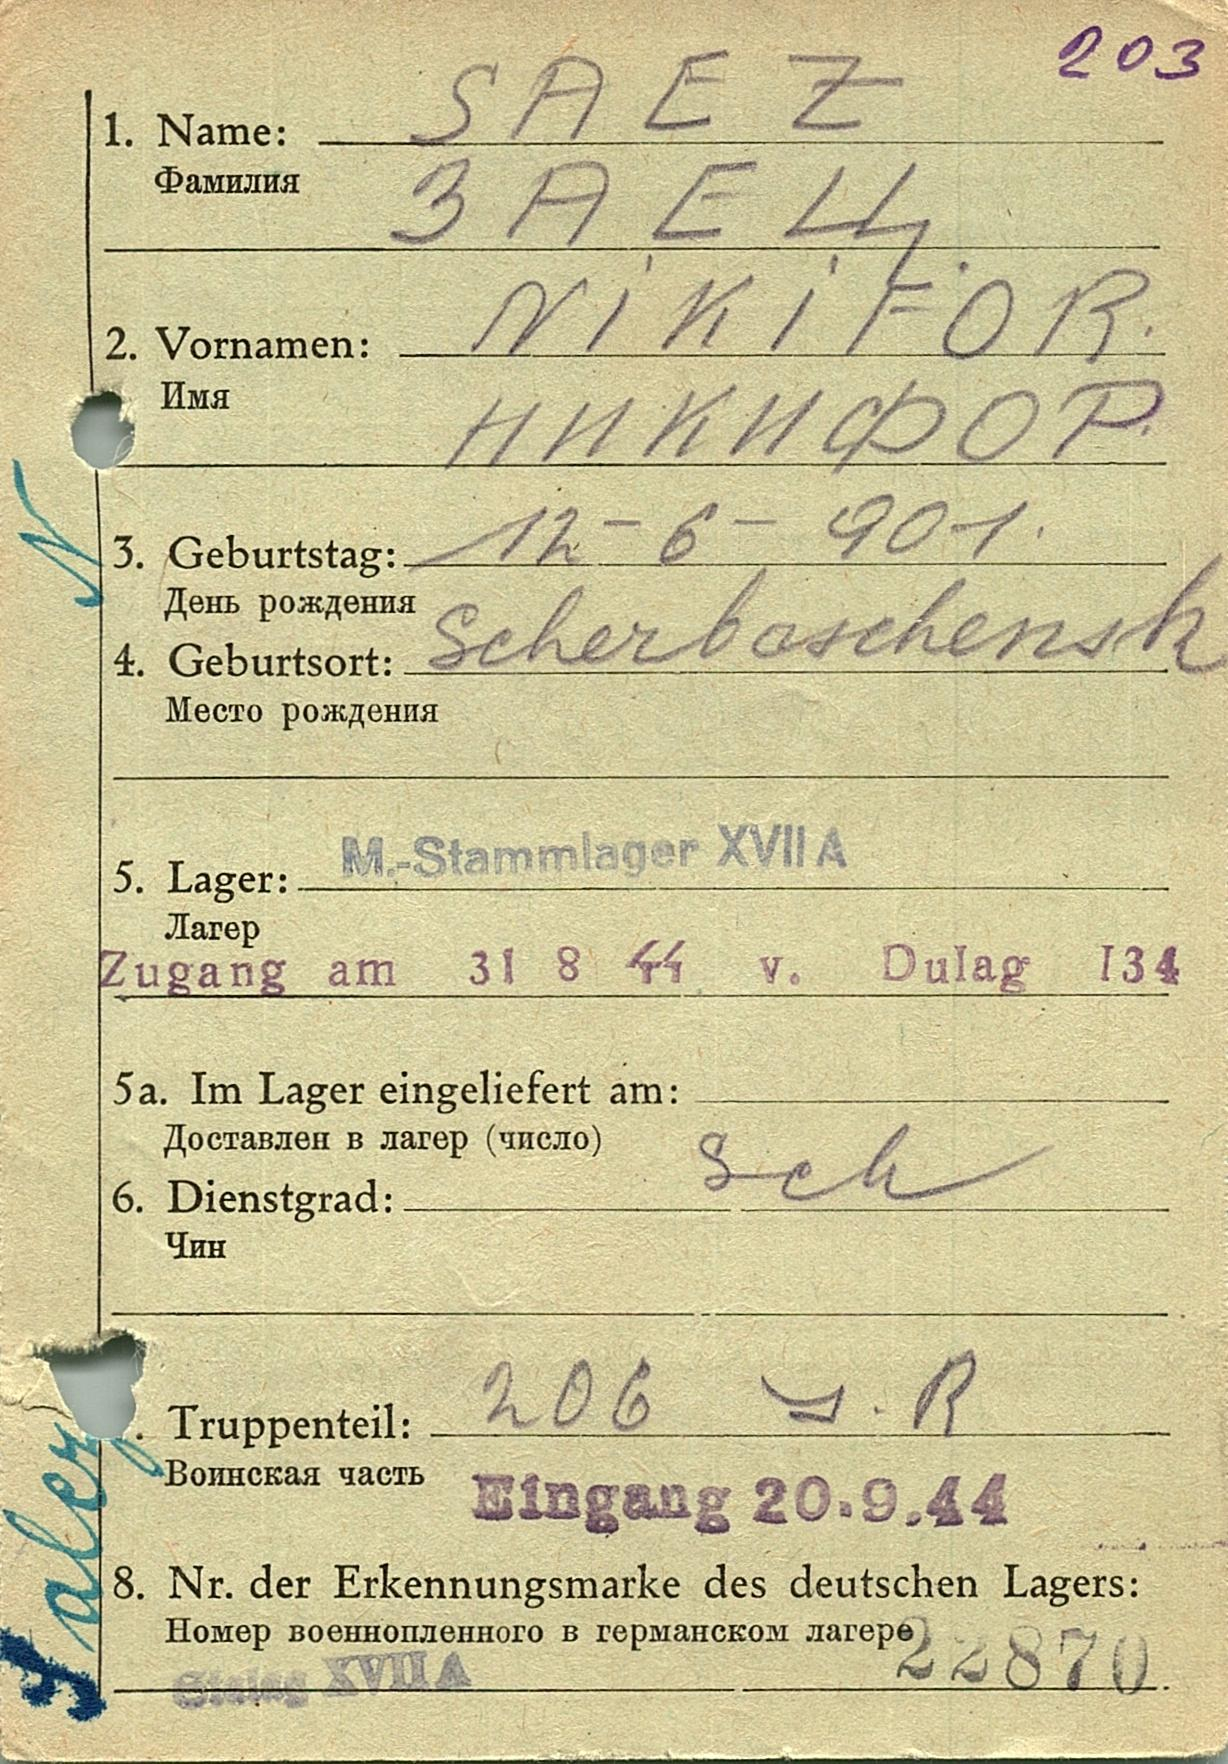 203
1. Name: SAEZ
Фамилия ЗАЕЦ.
2. Vornamen: NiKiFOR.
Имя НИКИФОР.
3. Geburtstag: 12-6-901.
День рождения
4. Geburtsort: Scherbaschensk
Место рождения
5. Lager: M.-Stammlager XVII A
Лагер
Zugang am 31 8 44 v. Dulag I34
5a. Im Lager eingeliefert am:
Доставлен в лагер (число)
6. Dienstgrad: Sch
Чин
. Truppenteil: 206 . R
Воинская часть
Eingang 20.9.44
8. Nr. der Erkennungsmarke des deutschen Lagers:
Номер военнопленного в германском лагере 22870.
Stalag XVII A
N